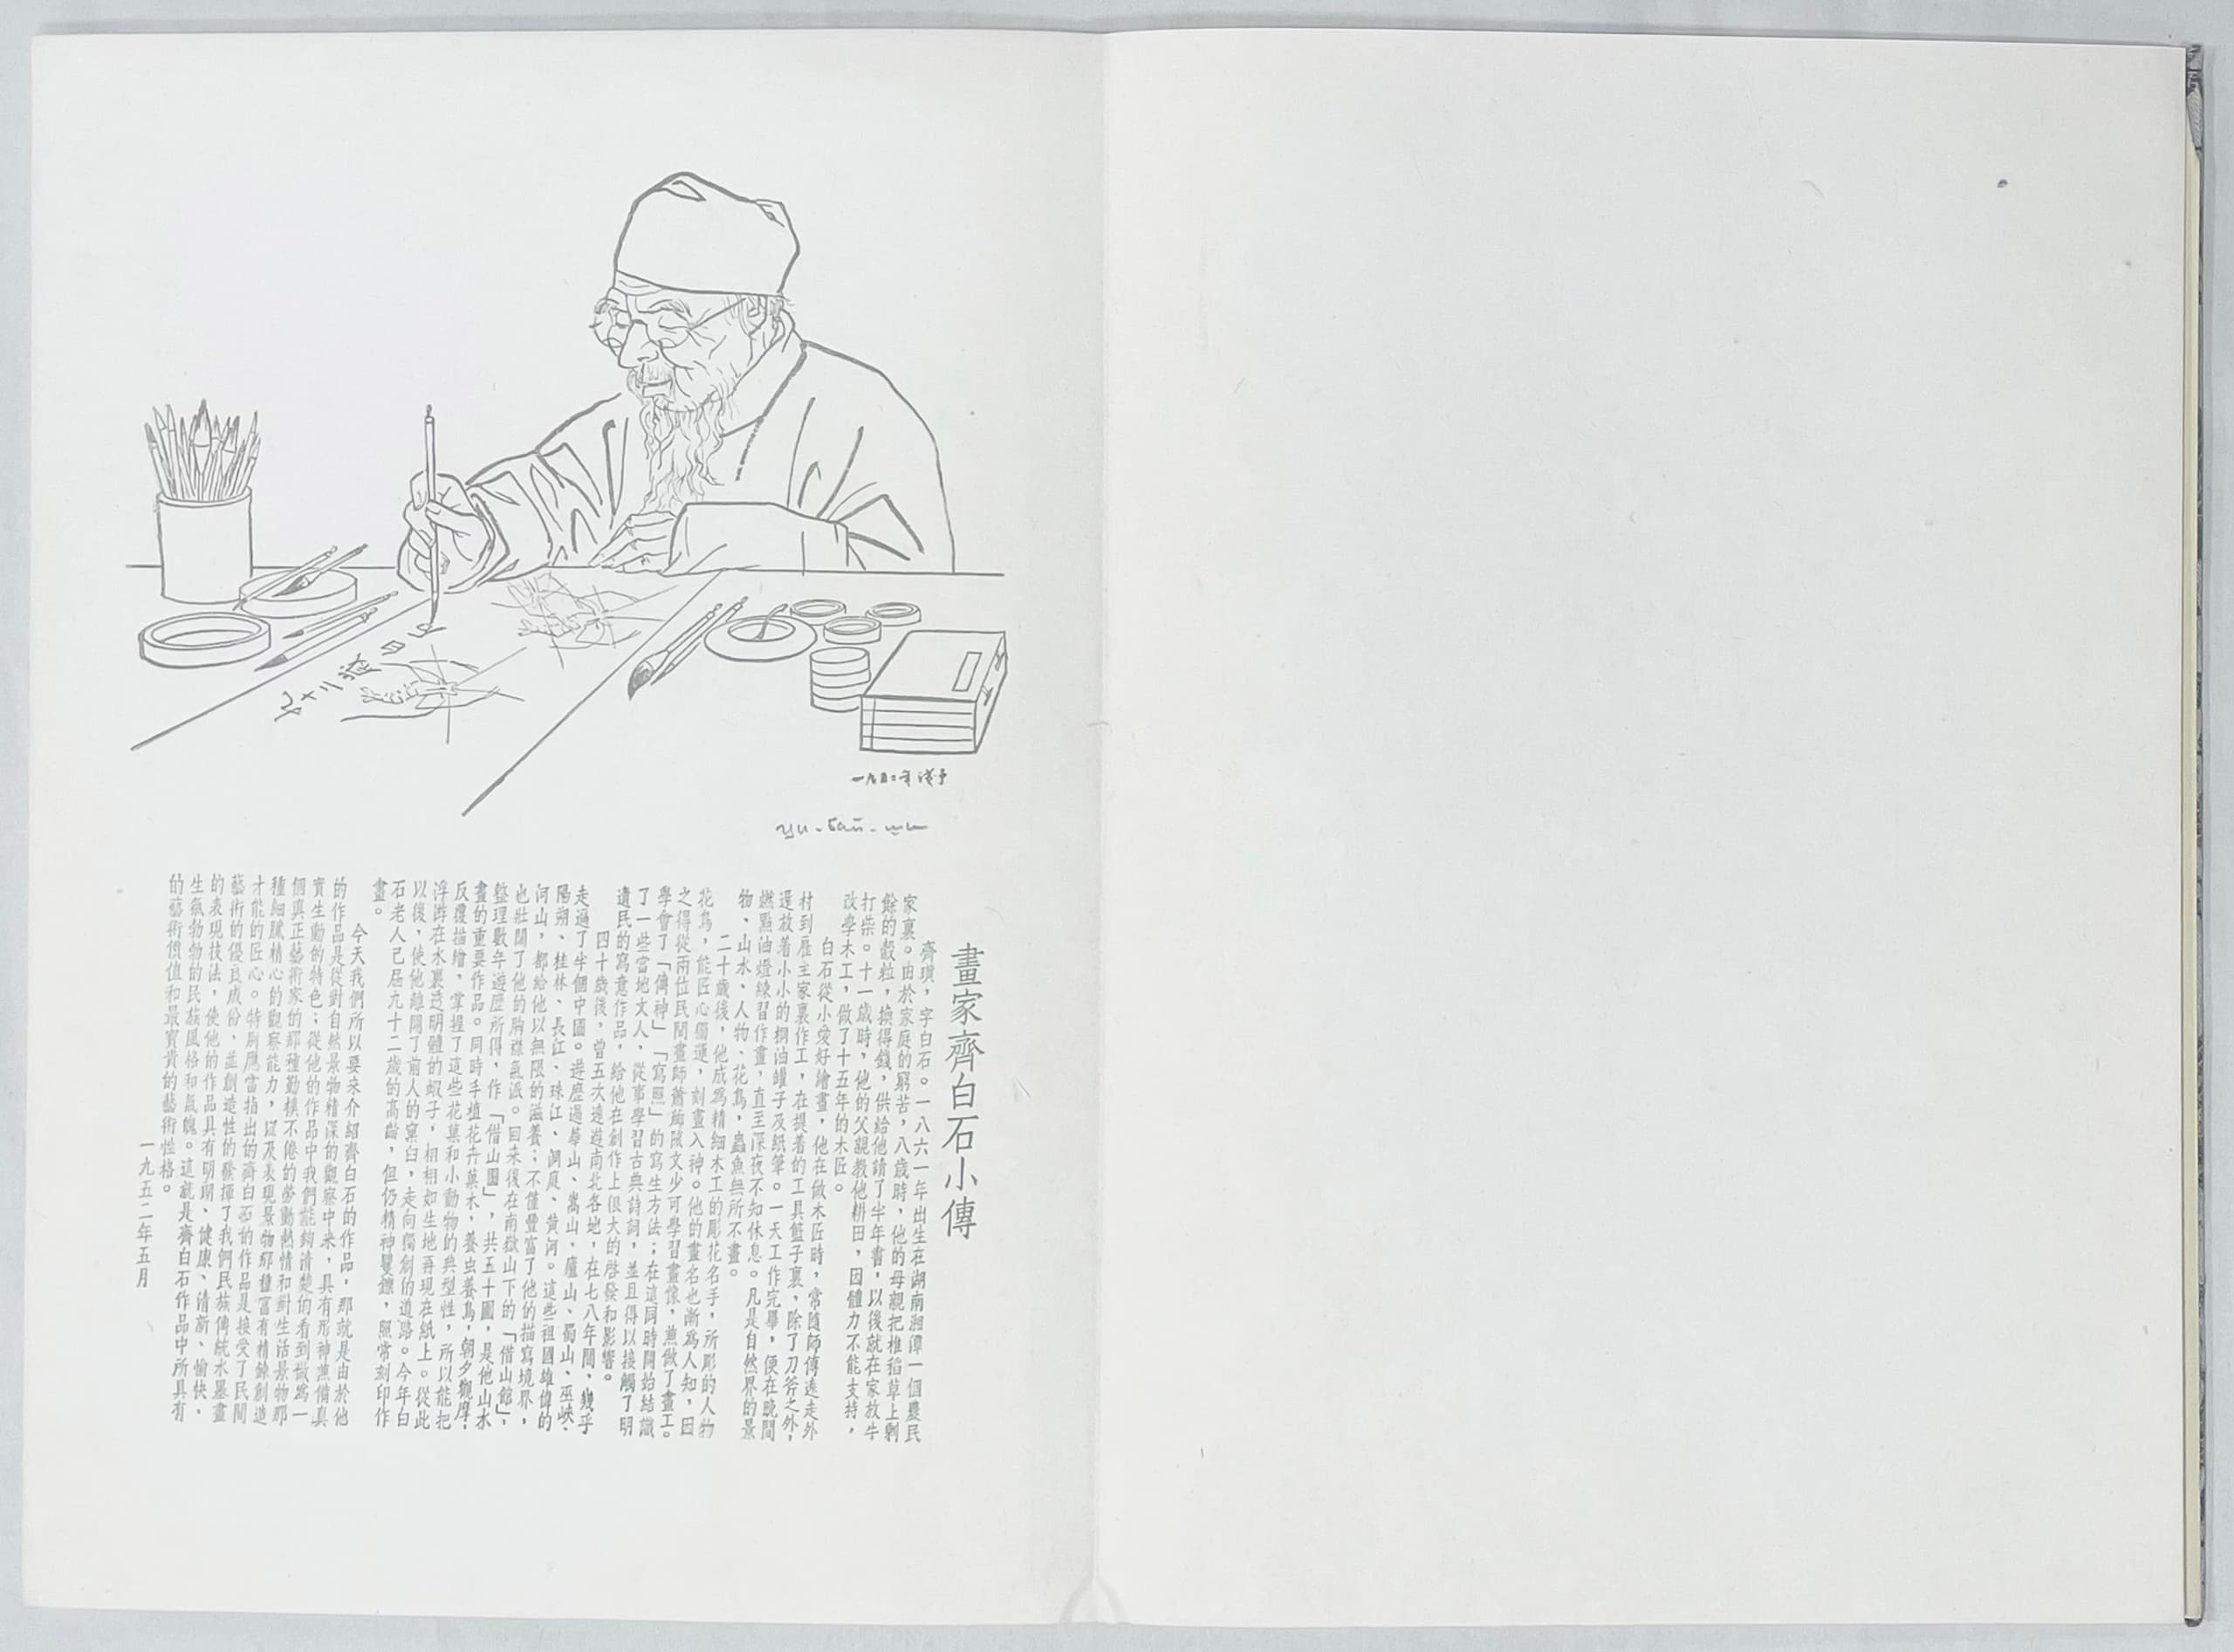 九十二歲白
一九五二年淺予
畫家齊白石小傳
齊璜，字白石。一八六一年出生在湖南湘潭一個農民
家裏。由於家庭的窮苦，八歲時，他的母親把椎稻草上剩
餘的穀粒，換得錢，供給他請了半年書，以後就在家放牛
打柴。十一歲時，他的父親教他耕田，因體力不能支持，
改學木工，做了十五年的木匠。
白石從小愛好繪畫，他在做木匠時，常隨師傅遠走外
村到雇主家裏作工，在提着的工具籃子裏，除了刀斧之外，
還放着小小的桐油罐子及紙筆。一天工作完畢，便在晚間
燃點油燈練習作畫，直至深夜不知休息。凡是自然界的景
物、山水、人物、花鳥，蟲魚無所不畫。
二十歲後，他成爲精細木工的彫花名手，所彫的人物
花鳥，能匠心獨運，刻畫入神。他的畫名也漸爲人知，因
之得從兩位民間畫師蕭薌陔文少可學習畫像，兼做了畫工。
學會了「傳神」「寫照」的寫生方法；在這同時開始結識
了一些當地文人，從事學習古典詩詞，並且得以接觸了明
遺民的寫意作品，給他在創作上很大的啓發和影響。
四十歲後，曾五次遠遊南北各地，在七八年間、幾乎
走過了半個中國。遊歷過華山、嵩山、廬山、蜀山、巫峽、
陽朔、桂林、長江、珠江、洞庭、黄河。這些祖國雄偉的
河山，都給他以無限的滋養；不僅豐富了他的描寫境界，
也壯闊了他的胸襟氣派。回來後在南嶽山下的「借山館」，
整理數年遊歷所得，作「借山圖」，共五十圖，是他山水
畫的重要作品。同時手植花卉菓木，養虫養鳥，朝夕觀摩，
反覆描繪，掌握了這些花菓和小動物的典型性，所以能把
浮游在水裏透明體的蝦子，相相如生地再現在紙上。從此
以後，使他離開了前人的窠臼，走向獨創的道路。今年白
石老人已屆九十二歲的高齡，但仍精神矍鑠，照常刻印作
畫。
今天我們所以要來介紹齊白石的作品，那就是由於他
的作品是從對自然景物精深的觀察中來，具有形神兼備真
實生動的特色；從他的作品中我們能夠清楚的看到做爲一
個眞正藝術家的那種勤樸不倦的勞動熱情和對生活景物那
種細膩精心的觀察能力，以及表現景物那種富有精鍊創造
才能的匠心。特別應當指出的齊白石的作品是接受了民間
藝術的優良成份，並創造性的發揮了我們民族傳統水墨畫
的表現技法，使他的作品具有明朗、健康、清新、愉快、
生氣物物的民族風格和氣魄。這就是齊白石作品中所具有
的藝術價值和最寶貴的藝術性格。
一九五二年五月